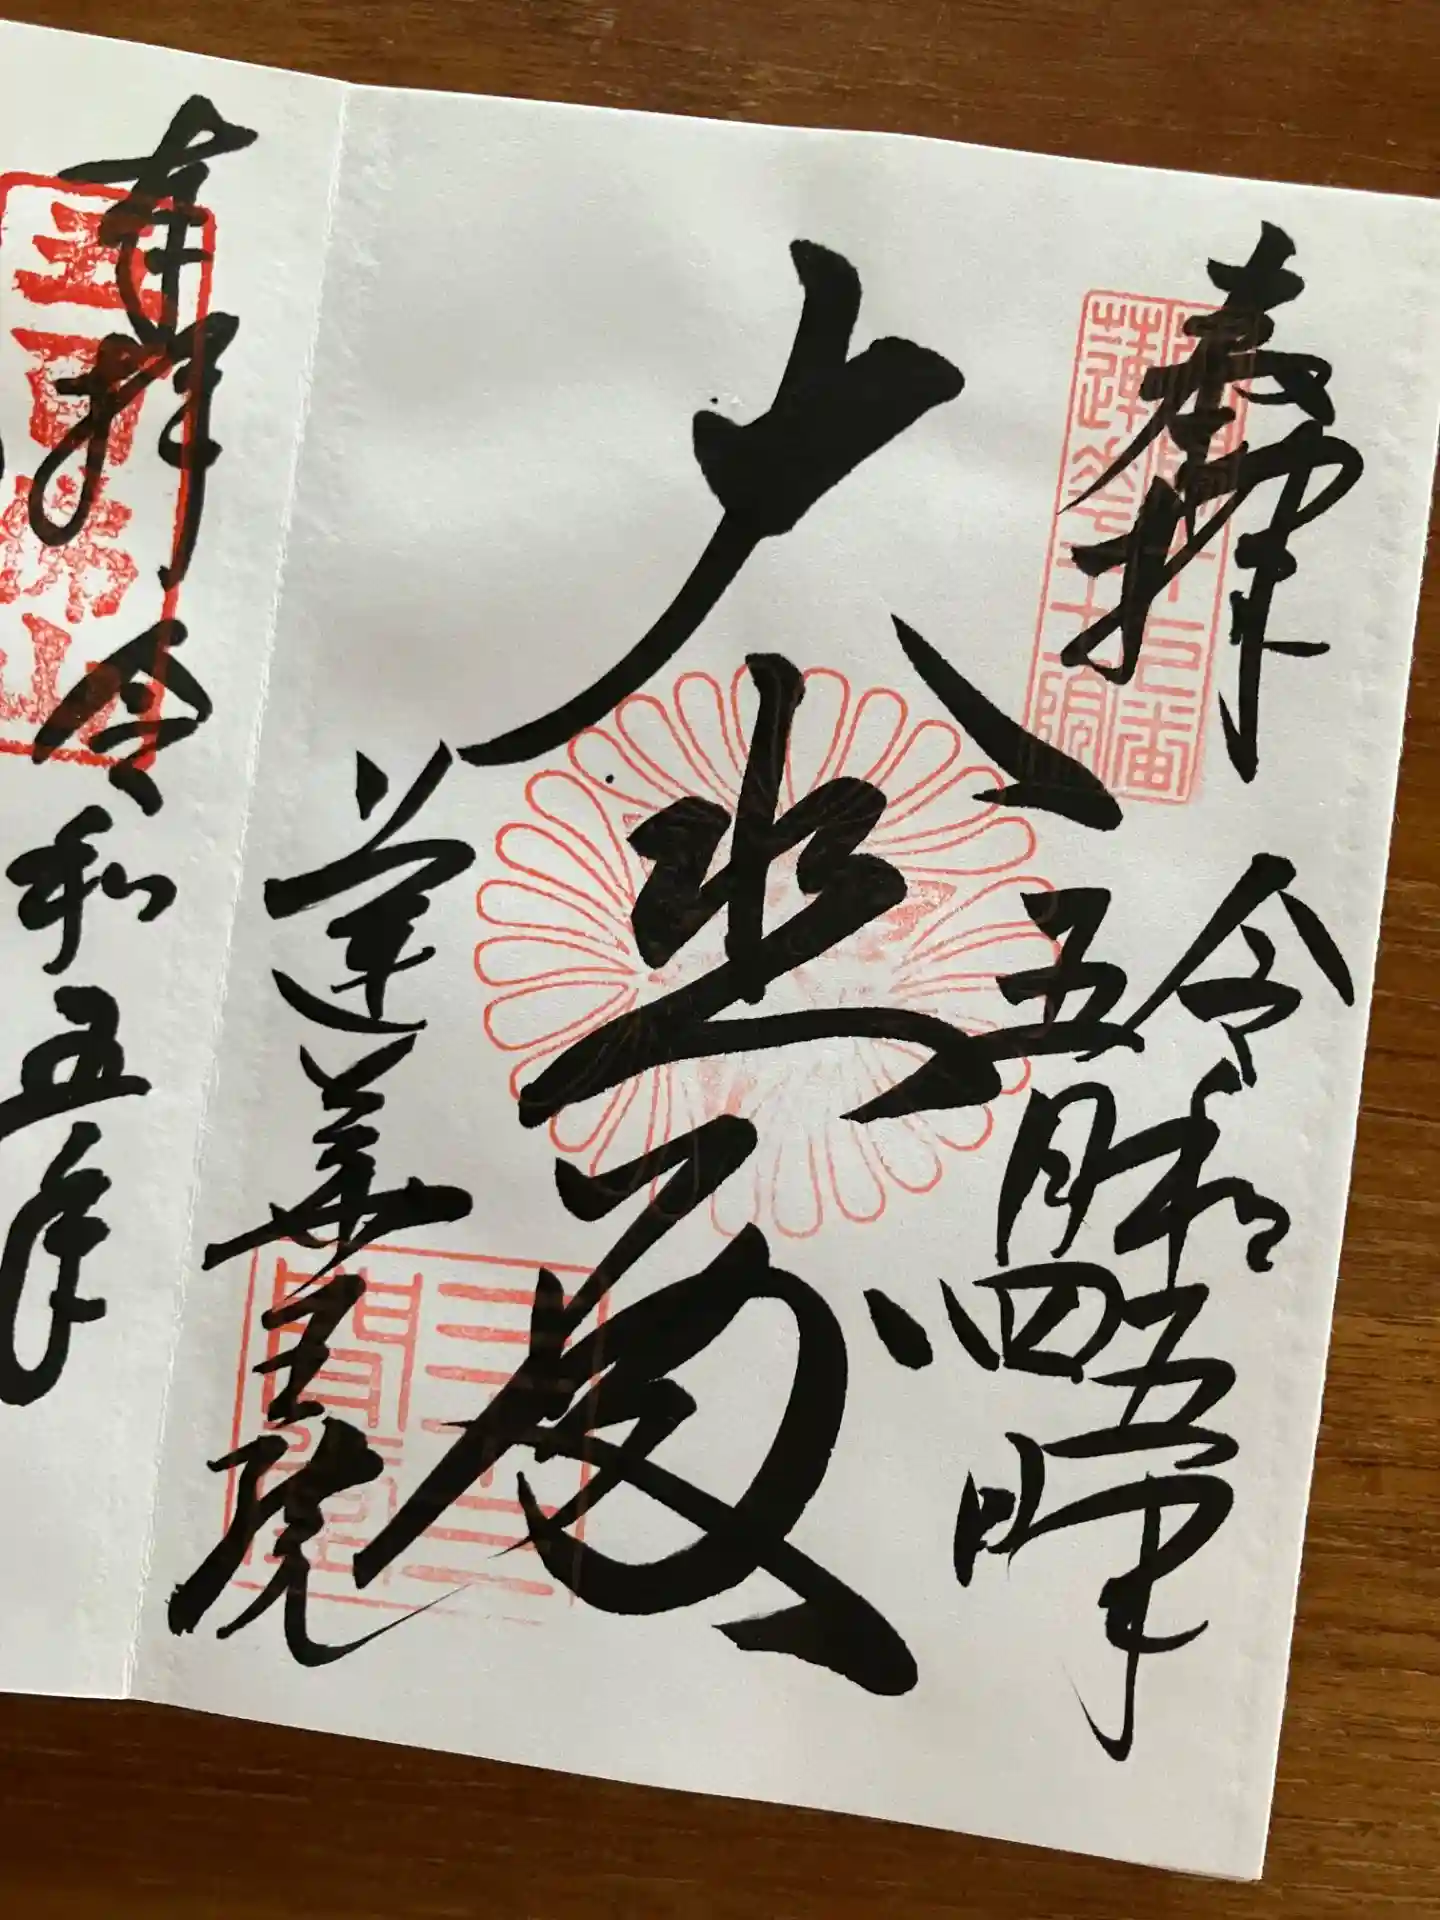 奉拝
令和五年
五月四日
大悲殿
蓮華王院
奉拝
令和五年